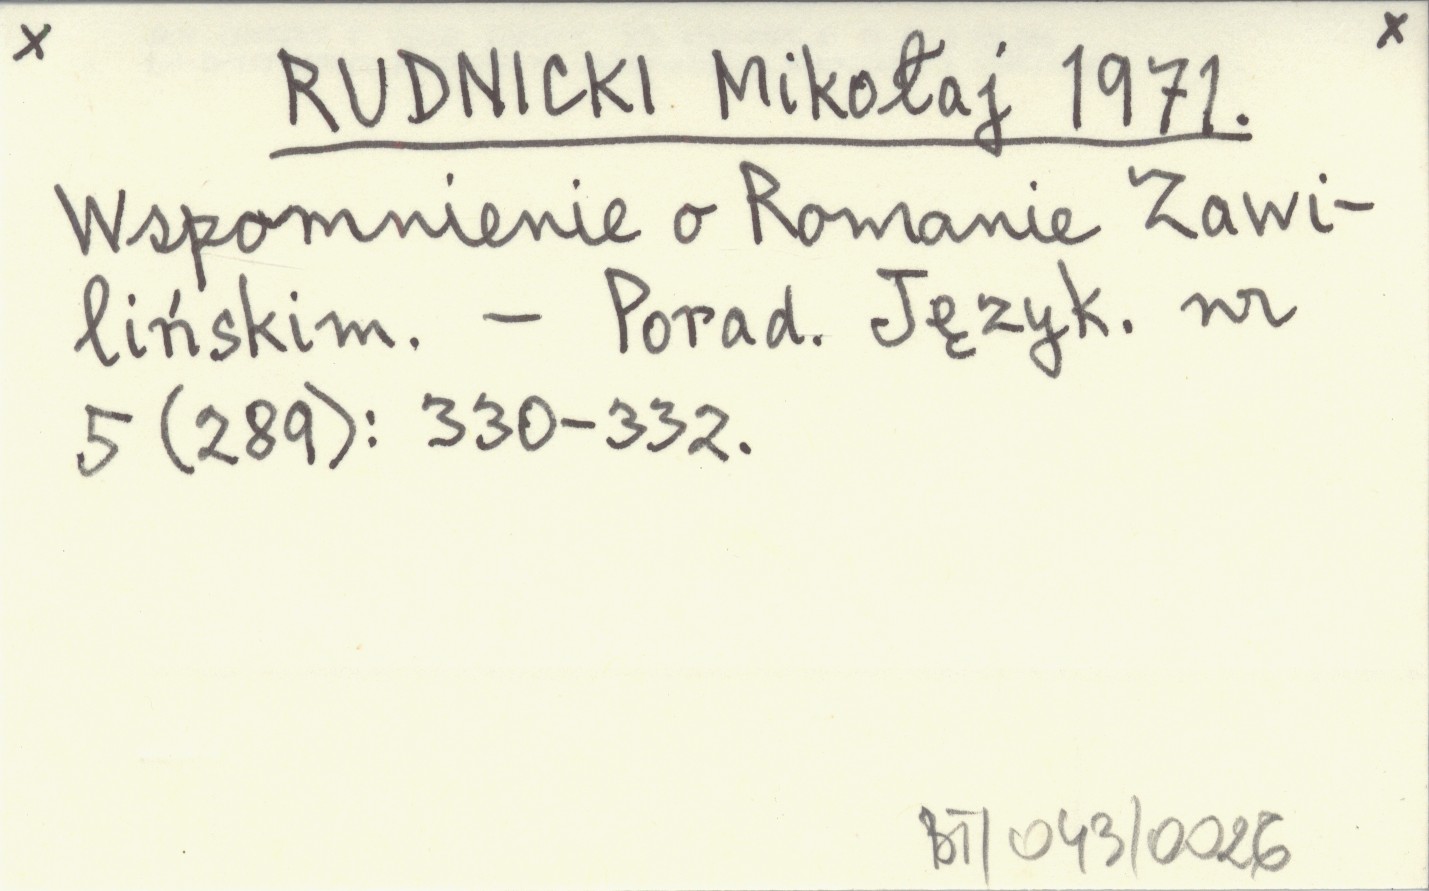 x x
RUDNICKI Mikołaj 1971.
Wspomnienie o Romanie Zawi-
lińskim. - Porad. Język. nr
5 (289): 330-332.
BT/043/0026